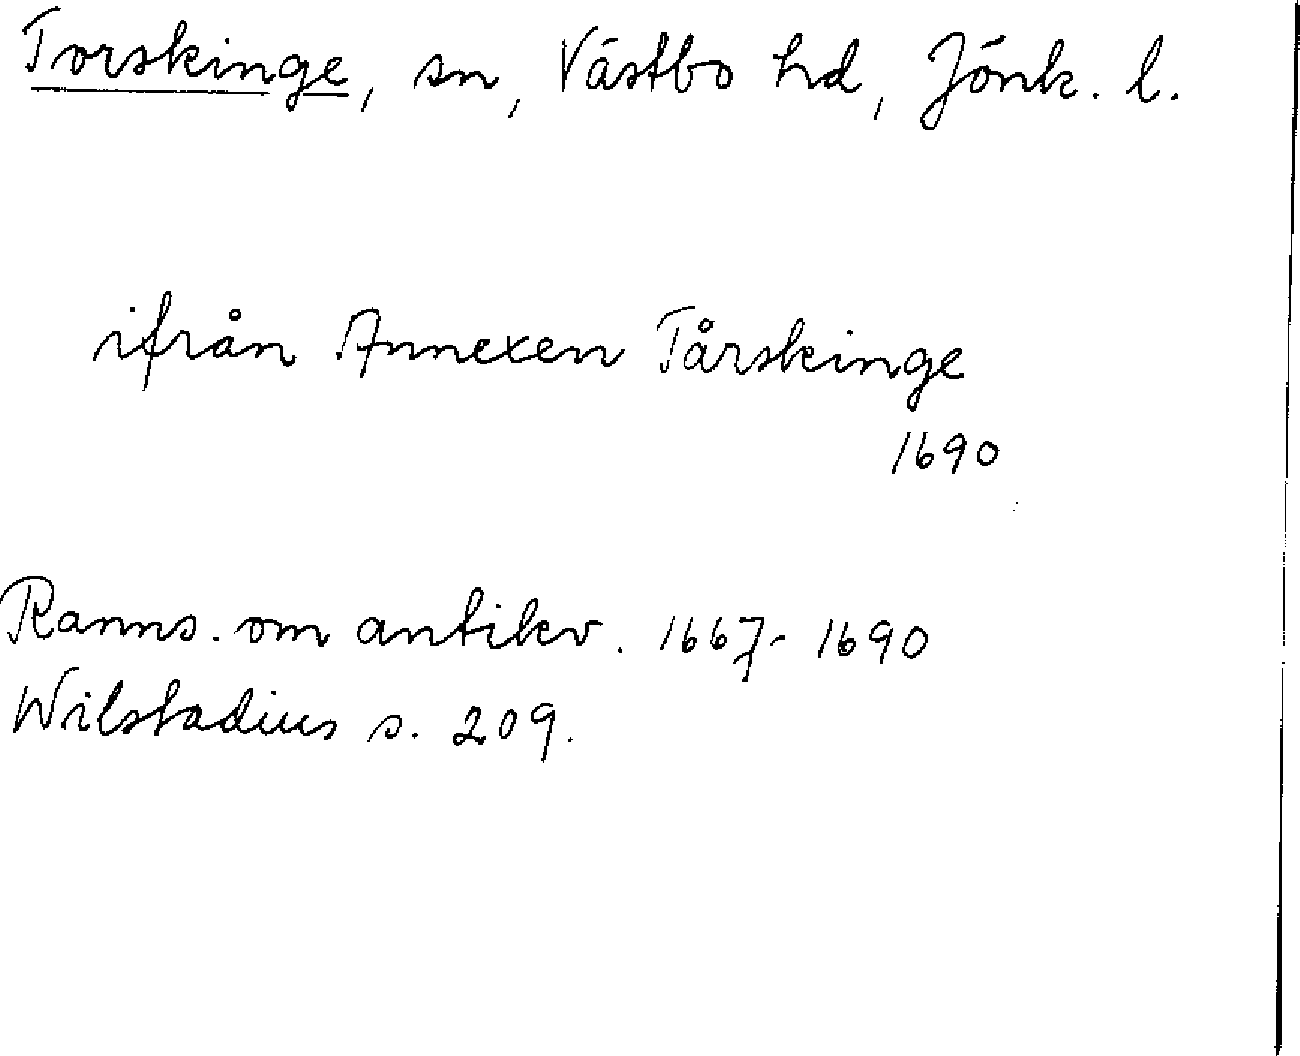 Torskinge, sn, Västbo hd, Jönk. l.
ifrån Annexen Tårskinge
1690
Ranns. om antikv. 1667-1690
Wilstadius s. 209.